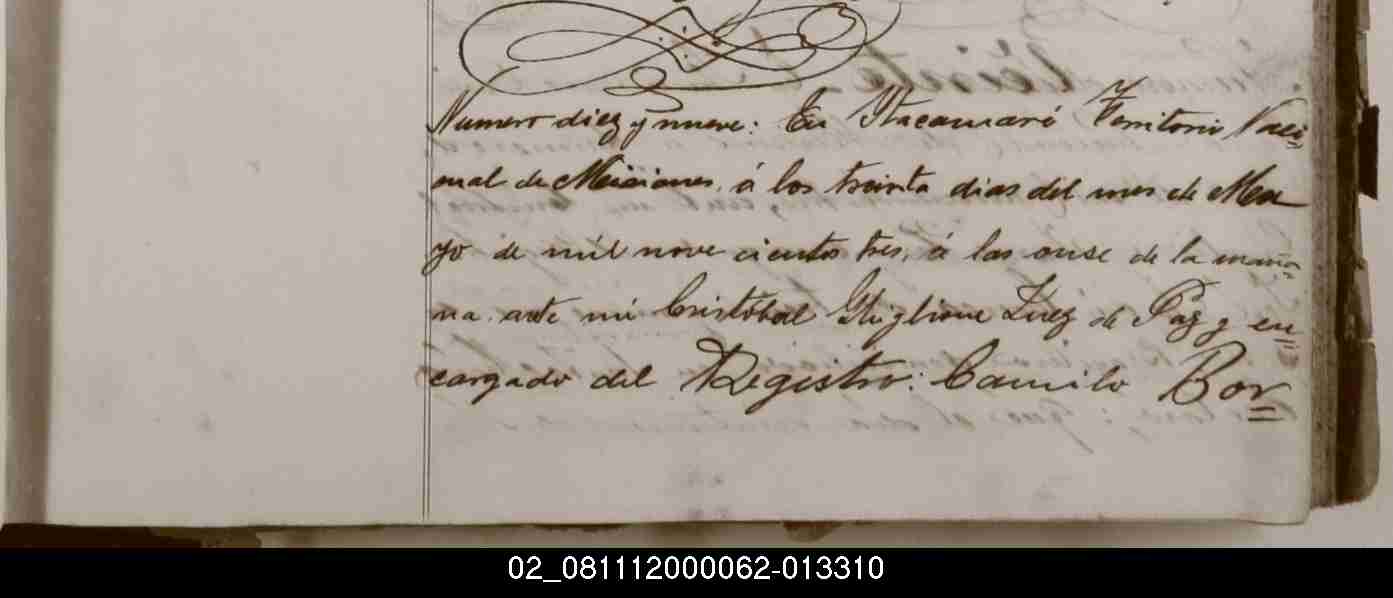 Numero diez y nueve: En Itacaruaré Territorio Naci=
onal de Misiones, á los treinta dias del mes de Ma
yo de mil nove cientos tres, á las onse de la maña=
na, ante mi Cristóbal Ghiglione Juez de Paz y en=
cargado del Registro: Camilo Bor=
02_081112000062-013310